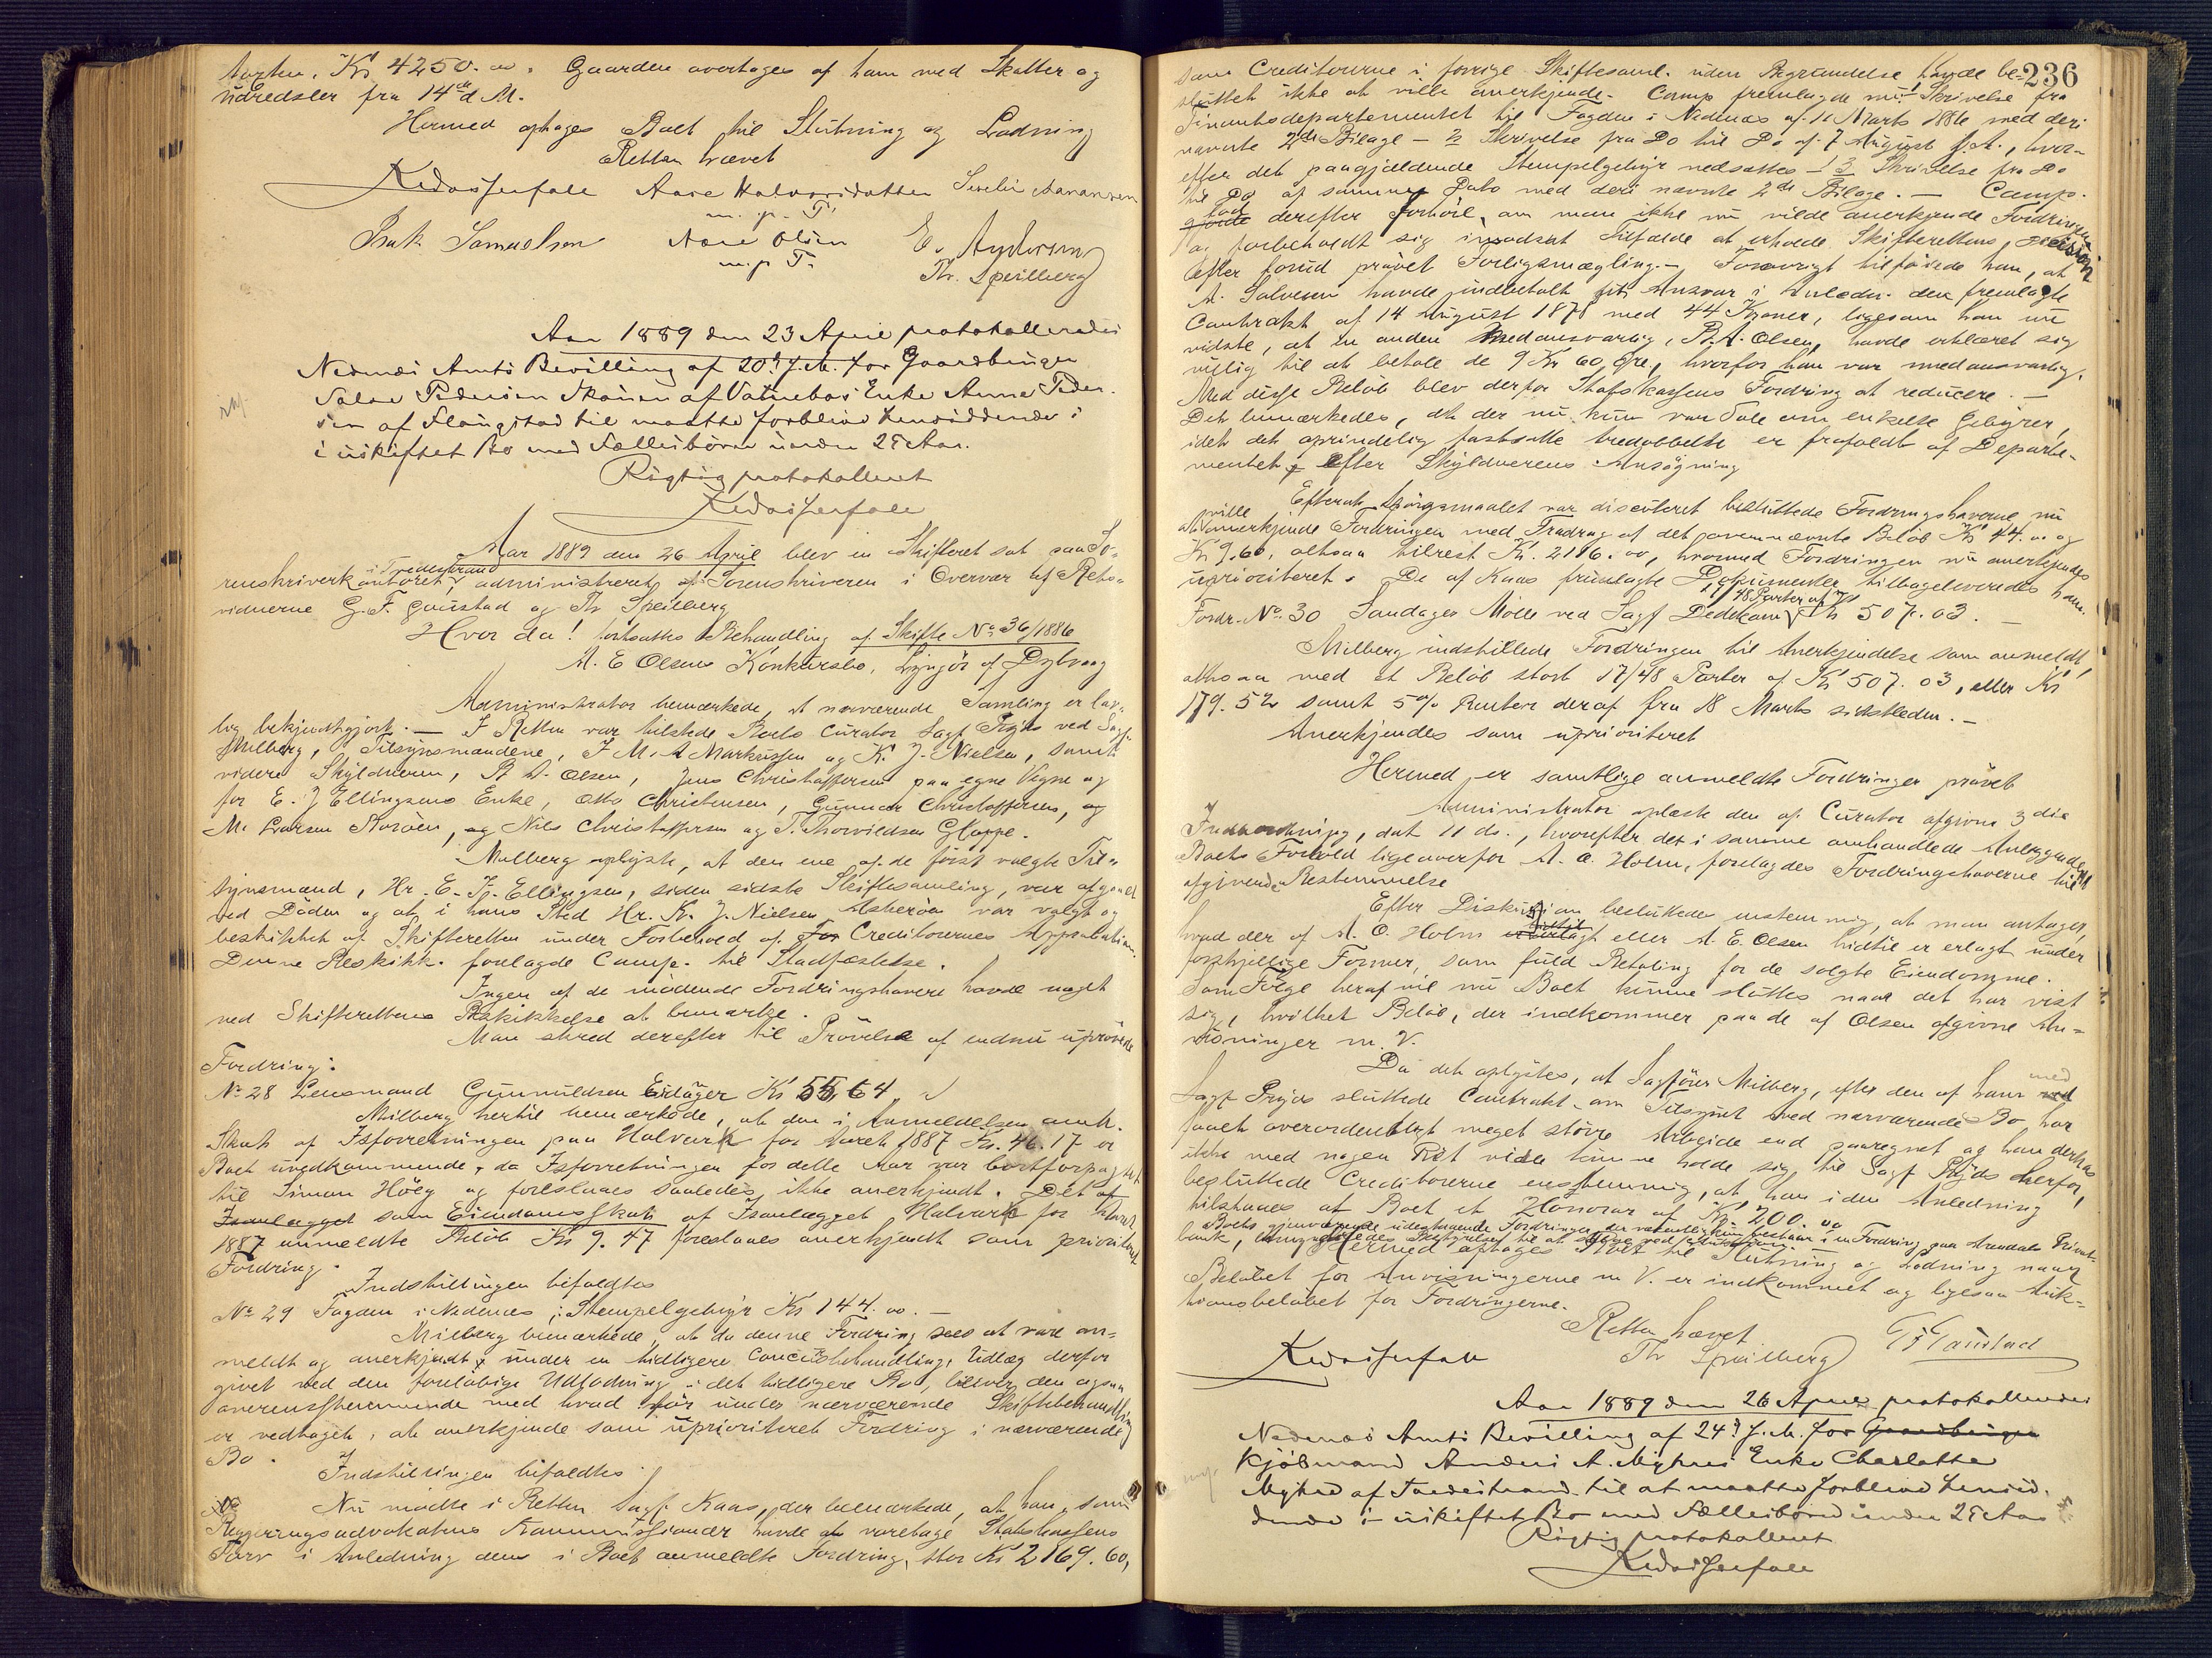 Kr. 4250.00. Gaarden overtages af ham med Skatter og
Udredsler fra 14de d M.
Hermed optages Boet til Slutning og Lodning
Retten hævet
Aase Halvorsdatter
m. p. P.
Isak Samuelsen Aase Olsen E. Andersen
m. p. P. Th. Speilberg
Aar 1889 den 23 April protokolleredes
Nedenæs Amts Bevilling af 20de d. M. for Gaardbruger
Salve Pedersen Skaaren af Vatnebos Enke Anne Peder-
sen af Flangstad til maatte forblive hensiddende i
i uskiftet Bo med Fællesbørn under 25 Aar.
Rigtig protokolleret
Aar 1889 den 26 April blev en Skifteret sat paa So-
renskriverkontoret i Tvedestrand, administreret af Sorenskriveren i Overvær af Rets-
vidnerne G. F. Goustad og Th Speilberg
Hvor da! fortsattes Behandling af Skifte No 36/1886
A. E Olsens Konkursbo, Lyngør af Dybvaag
Administrator bemærkede, at nærværende Samling er lov-
lig bekjendtgjort. — I Retten var tilstede Boets Curator Sagf. Prydz ved Sagf.
Milberg, Tilsynsmændene, J. M. A Markussen og K. J. Nielsen, samt
videre Skyldneren, B. A. Olsen, Jens Christoffersen paa egne Vegne og
for E. J Ellingsens Enke, Otto Christensen, Gunnar Christoffersen, og
M. Larsen Borøen, og Nils Christoffersen og T. Thorvildsen Gloppe.
Milberg oplyste, at den ene af de først valgte Til-
synsmænd, Hr. E. Jg. Ellingsen, siden sidste Skiftesamling, var afgaaet
ved Døden og at i hans Sted Hr. K. J. Nielsen Askerøen var valgt og
beskikket af Skifteretten under Forbehold af for Creditorernes Approbation.
Denne Beskikk. forelagde Comp. til Stadfæstelse.
Ingen af de mødende Fordringshavere havde noget
ved Skifterettens Beskikkelse at bemærke.
Man skred derefter til Prøvelse af endnu uprøvede
Fordring:
No 28 Lensmand Gunnuldsen Eidager Kr 55.64
Milberg hertil bemærkede, at den i Anmeldelsen anm.
Skat af Isforretningen paa Halvark for Aaret 1887 Kr. 46.17 er
Boet uvedkommende, da Isforretningen for dette Aar var bortforpagtet
til Simon Höeg og foreslaaes saaledes ikke anerkjendt. Det af
Isanlægget som Eiendomsskat af Isanlægget Halvark for Aaret
1887 anmeldte Beløb Kr 9.47 foreslaaes anerkjendt som prioriteret
Fordring.
Indstillingen bifaldtes
No 29 Fogden i Nedenes, Stempelgebyr Kr 144.00. —
Milberg bemærkede, at da denne Fordring sees at være an-
meldt og anerkjendt under en tidligere Concursbehandling, Udlæg derfor
givet ved den foreløbige Udlodning i det tidligere Bo, bliver den ogsaa
overensstemmende med hvad før under nærværende Skiftebehandling
er vedtaget, at anerkjende som uprioriteret Fordring i nærværende
Bo.
Indstillingen bifaldtes
Nu mødte i Retten Sagf. Kaas, der bemærkede, at han, som
Regjeringsadvokatens Kommissionær havde at varetage Statskassens
Tarv i Anledning dens i Boet anmeldte Fordring, stor Kr 2169.60,
236
som Creditorerne i forrige Skiftesaml. uden Begrundelse havde be-
sluttet ikke at ville anerkjende. Comp fremlagde nu: Skrivelse fra
Finantsdepartementet til Fogden i Nedenæs af 11 Marts 1886 med deri
nævnte 2de Bilage — 2 Skrivelse fra Do til Do af 7 August f. A., hvor-
efter det paagjældende Stempelgebyr nedsattes — 3 Skrivelse fra Do
til Do af samme Dato med deri nævnte 2de Bilage. — Comp.
gjorde derefter Forhøre, om man ikke nu vilde anerkjende Fordringen
og forbeholdt sig i modsat Tilfælde at erholde Skifterettens Decision
efter forud prøvet Forligsmægling. — Forøvrigt tilføiede han, at
A. Salvesen havde indbetalt sit Ansvar i Anledn. den fremlagte
Contrakt af 14 August 1878 med 44 Kroner, ligesom han nu
vidste, at en anden Medansvarlig, B. A. Olsen, havde erklæret sig
villig til at betale de 9 Kr 60 Øre, hvorfor han var medansvarlig.
Med disse Beløb blev derfor Statskassens Fordring at reducere. —
Det bemærkedes, at der nu kun var Tale om enkelte Gebyrer,
idet det oprindelig fastsatte tredobbelte er frafaldt af Departe-
mentet efter Skyldnerens Ansøgning
Efterat Spørgsmaalet var discuteret besluttede Fordringshaverne nu
at ville anerkjende Fordringen med Fradrag af det ovennævnte Beløb Kr 44.00 og
Kr 9.60, altsaa tilrest Kr. 2116.00, hvormed Fordringen nu anerkjendes
uprioriteret. De af Kaas fremlagte Dokumenter tilbageleveredes ham.
Fordr. No 30 Sandages Mølle ved Sagf Dedekam 17/48 Parter af Kr 507.03. —
Milberg indstillede Fordringen til Anerkjendelse som anmeldt,
altsaa med et Beløb stort 17/48 Parter af Kr 507.03, eller Kr
179.52 samt 5% Renter deraf fra 18 Marts sidstleden. —
Anerkjendes som uprioriteret
Hermed er samtlige anmeldte Fordringer prøvet
Administrator oplæste den af Curator afgivne 3die
Indberetning, dat 11 ds., hvorefter det i samme omhandlede
Boets Forhold ligeoverfor A. O. Holm, forelagdes Fordringshaverne til
afgivende Bestemmelse
Efter Diskussion besluttedes enstemmig, at man antager,
hvad der af A. O. Holm hidtil erlagt eller A. E. Olsen hidtil er erlagt under
forskjellige Former, som fuld Betaling for de solgte Eiendomme.
Som Følge heraf vil nu Boet kunne sluttes naar det har vist
sig, hvilket Beløb, der indkommer paa de af Olsen afgivne An-
visninger m. V.
Da det oplystes, at Sagfører Milberg, efter den af ham med
Sagf Prydz sluttede Contrakt om Tilsynet med nærværende Bo, har
faaet overordentligt meget større Arbeide end paaregnet og han derhos
ikke med nogen Ret vilde kunne holde sig til Sagf Prydz herfor,
besluttede Creditorerne enstemmig, at han i den Anledning
tilstaaes af Boet et Honorar af Kr. 200.00
Boets gjenværende udestaaende Fordringer, der væsentlig kun bestaar i en Fordring paa Arendals Privat-
bank,
Hermed optages Boet til Slutning og Lodning naar
Beløbet for Anvisningerne m V. er indkommet og ligesaa Auk-
tionsbeløbet for Fordringerne.
Retten hævet
Th Speilberg G F Goustad
Aar 1889 den 26 April protokolleredes
Nedenæs Amts Bevilling af 24de d. M. for Gaardbruger
Kjøbmand Anders A. Myhres Enke Charlotte
Myhre af Tvedestrand til at maatte forblive hensid-
dende i uskiftet Bo med Fællesbørn under 25 Aar
Rigtig protokolleret